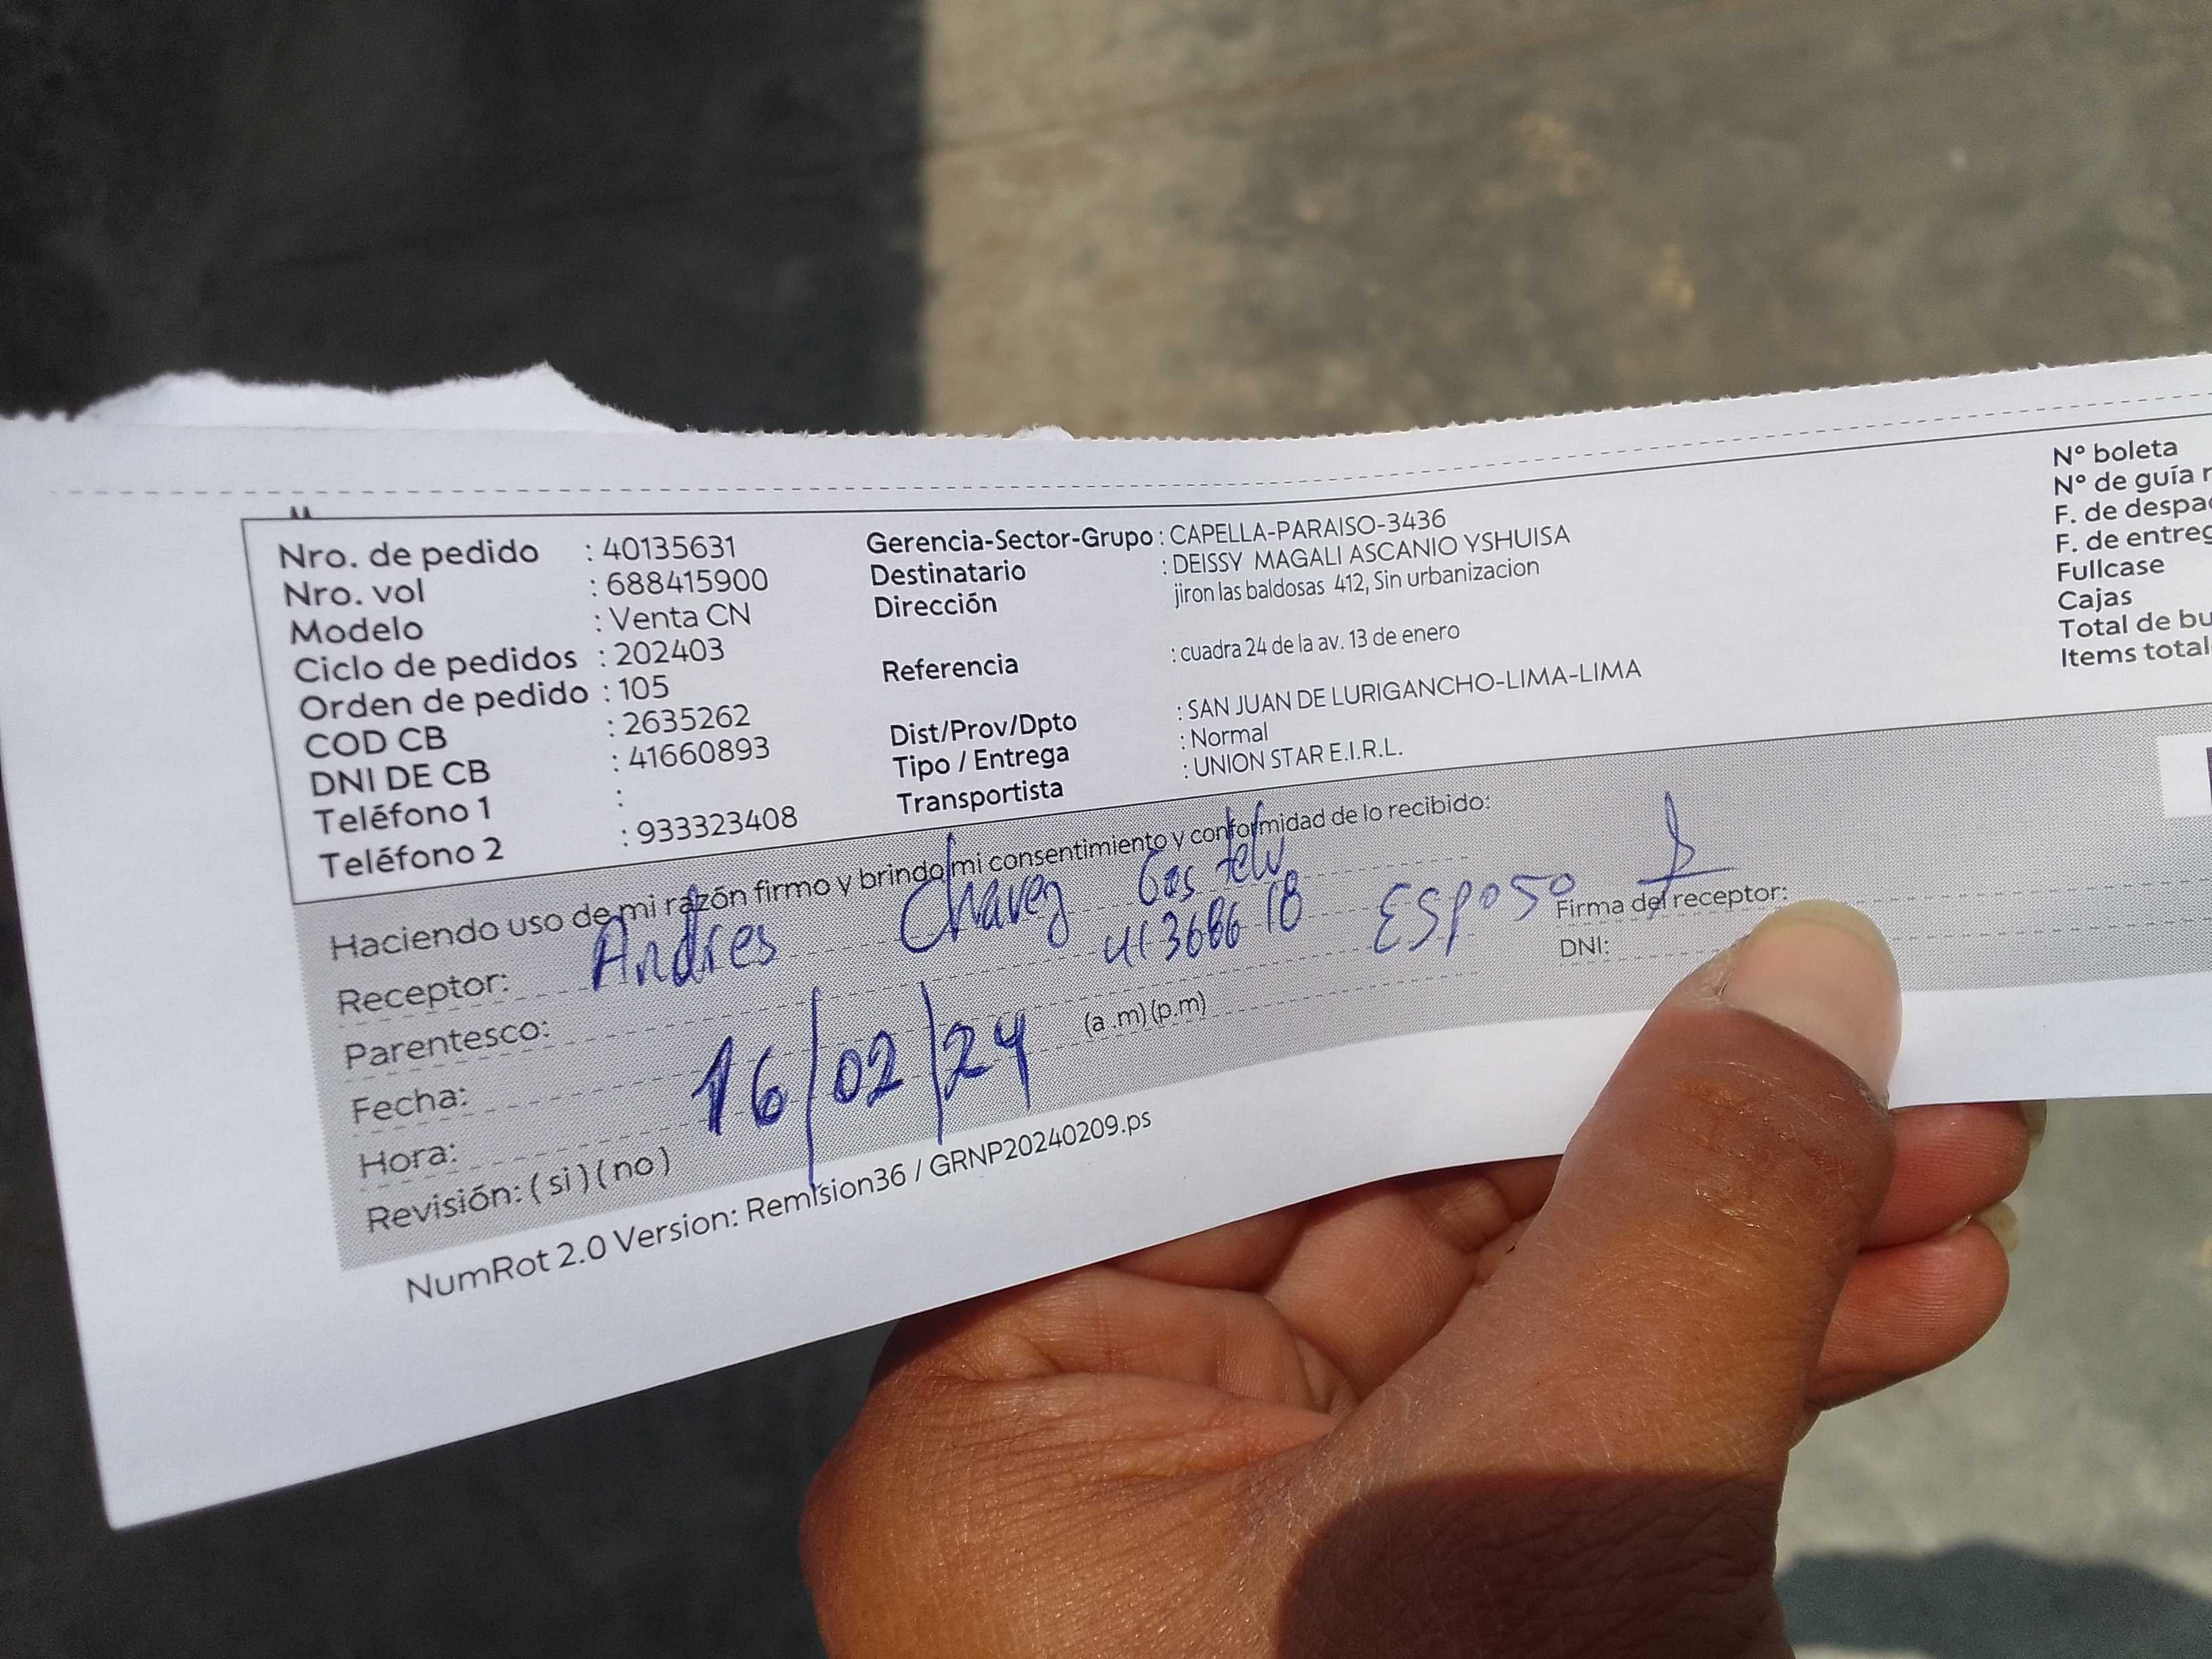 Nro. de pedido : 40135631
Nro. vol : 688415900
Modelo : Venta CN
Ciclo de pedidos : 202403
Orden de pedido : 105
COD CB : 2635262
DNI DE CB : 41660893
Teléfono 1 :
Teléfono 2 : 933323408
Gerencia-Sector-Grupo : CAPELLA-PARAISO-3436
Destinatario : DEISSY MAGALI ASCANIO YSHUISA
Dirección jiron las baldosas 412, Sin urbanizacion
Referencia : cuadra 24 de la av. 13 de enero
Dist/Prov/Dpto : SAN JUAN DE LURIGANCHO-LIMA-LIMA
Tipo / Entrega : Normal
Transportista : UNION STAR E.I.R.L.
Nº boleta
Nº de guía
F. de
F. de
Fullcase
Cajas
Total de
Items
Haciendo uso de mi razón firmo y brindo mi consentimiento y conformidad de lo recibido:
Receptor: Andres Chavez
Parentesco: ESPOSO
Fecha: 16/02/24
Hora: (a.m)(p.m)
Revisión: (si)(no)
Firma del receptor:
DNI:
NumRot 2.0 Version: Remision36 / GRNP20240209.ps